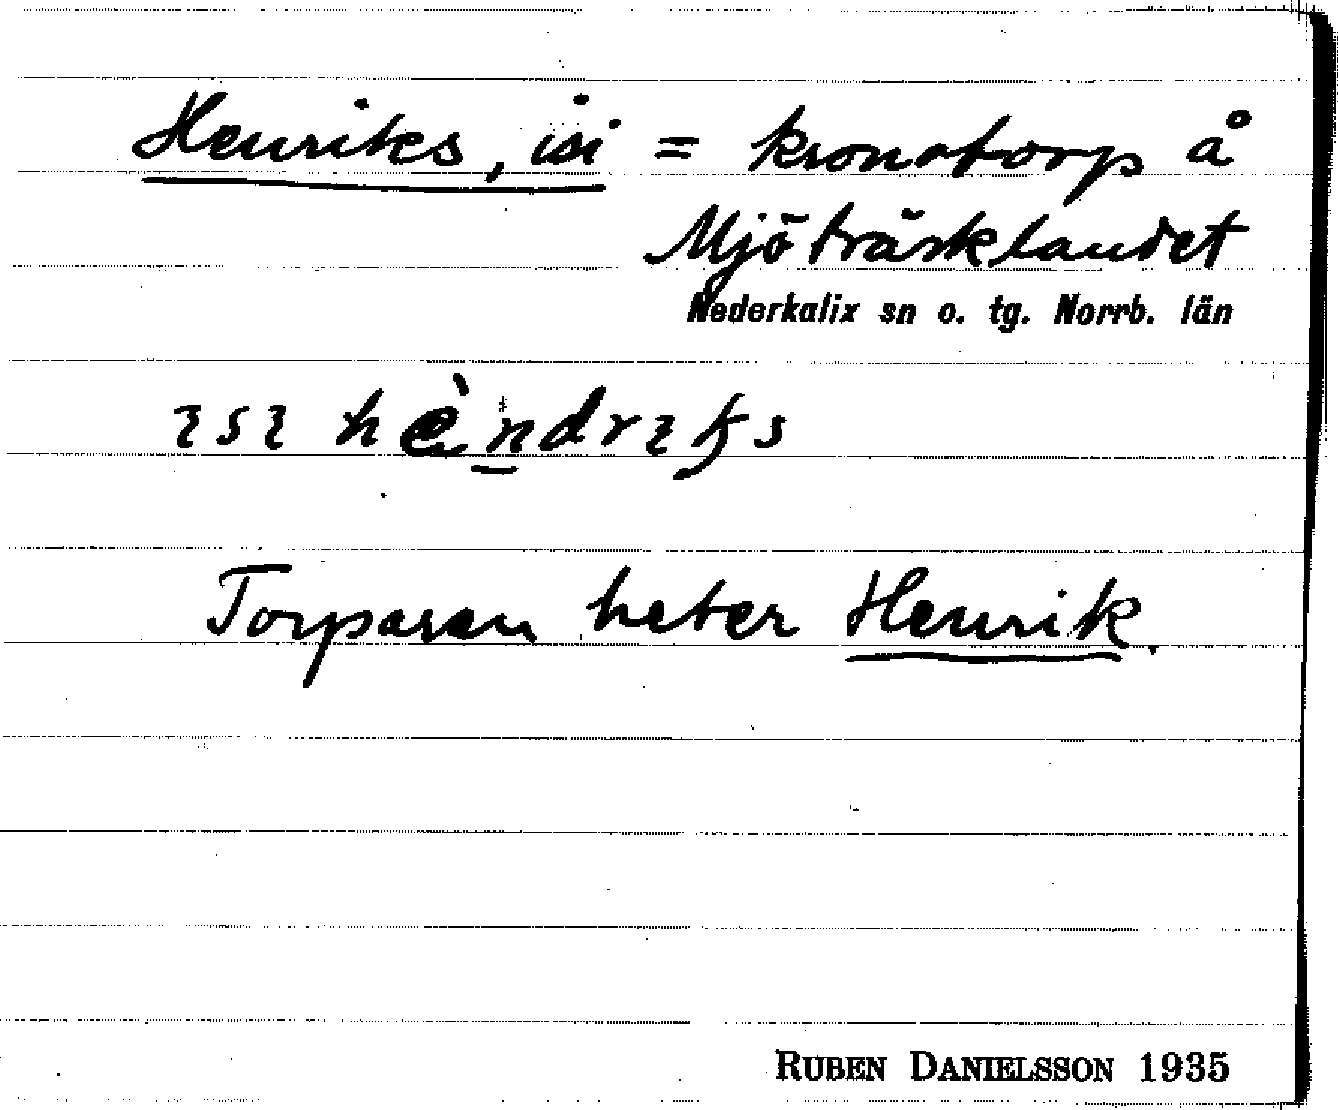 Henriks, isi = kronotorp å
Mjöträsklandet
Nederkalix sn o. tg. Norrb. län
ɩsɩ hèndrɩks
Torparen heter Henrik.
RUBEN DANIELSSON 1935